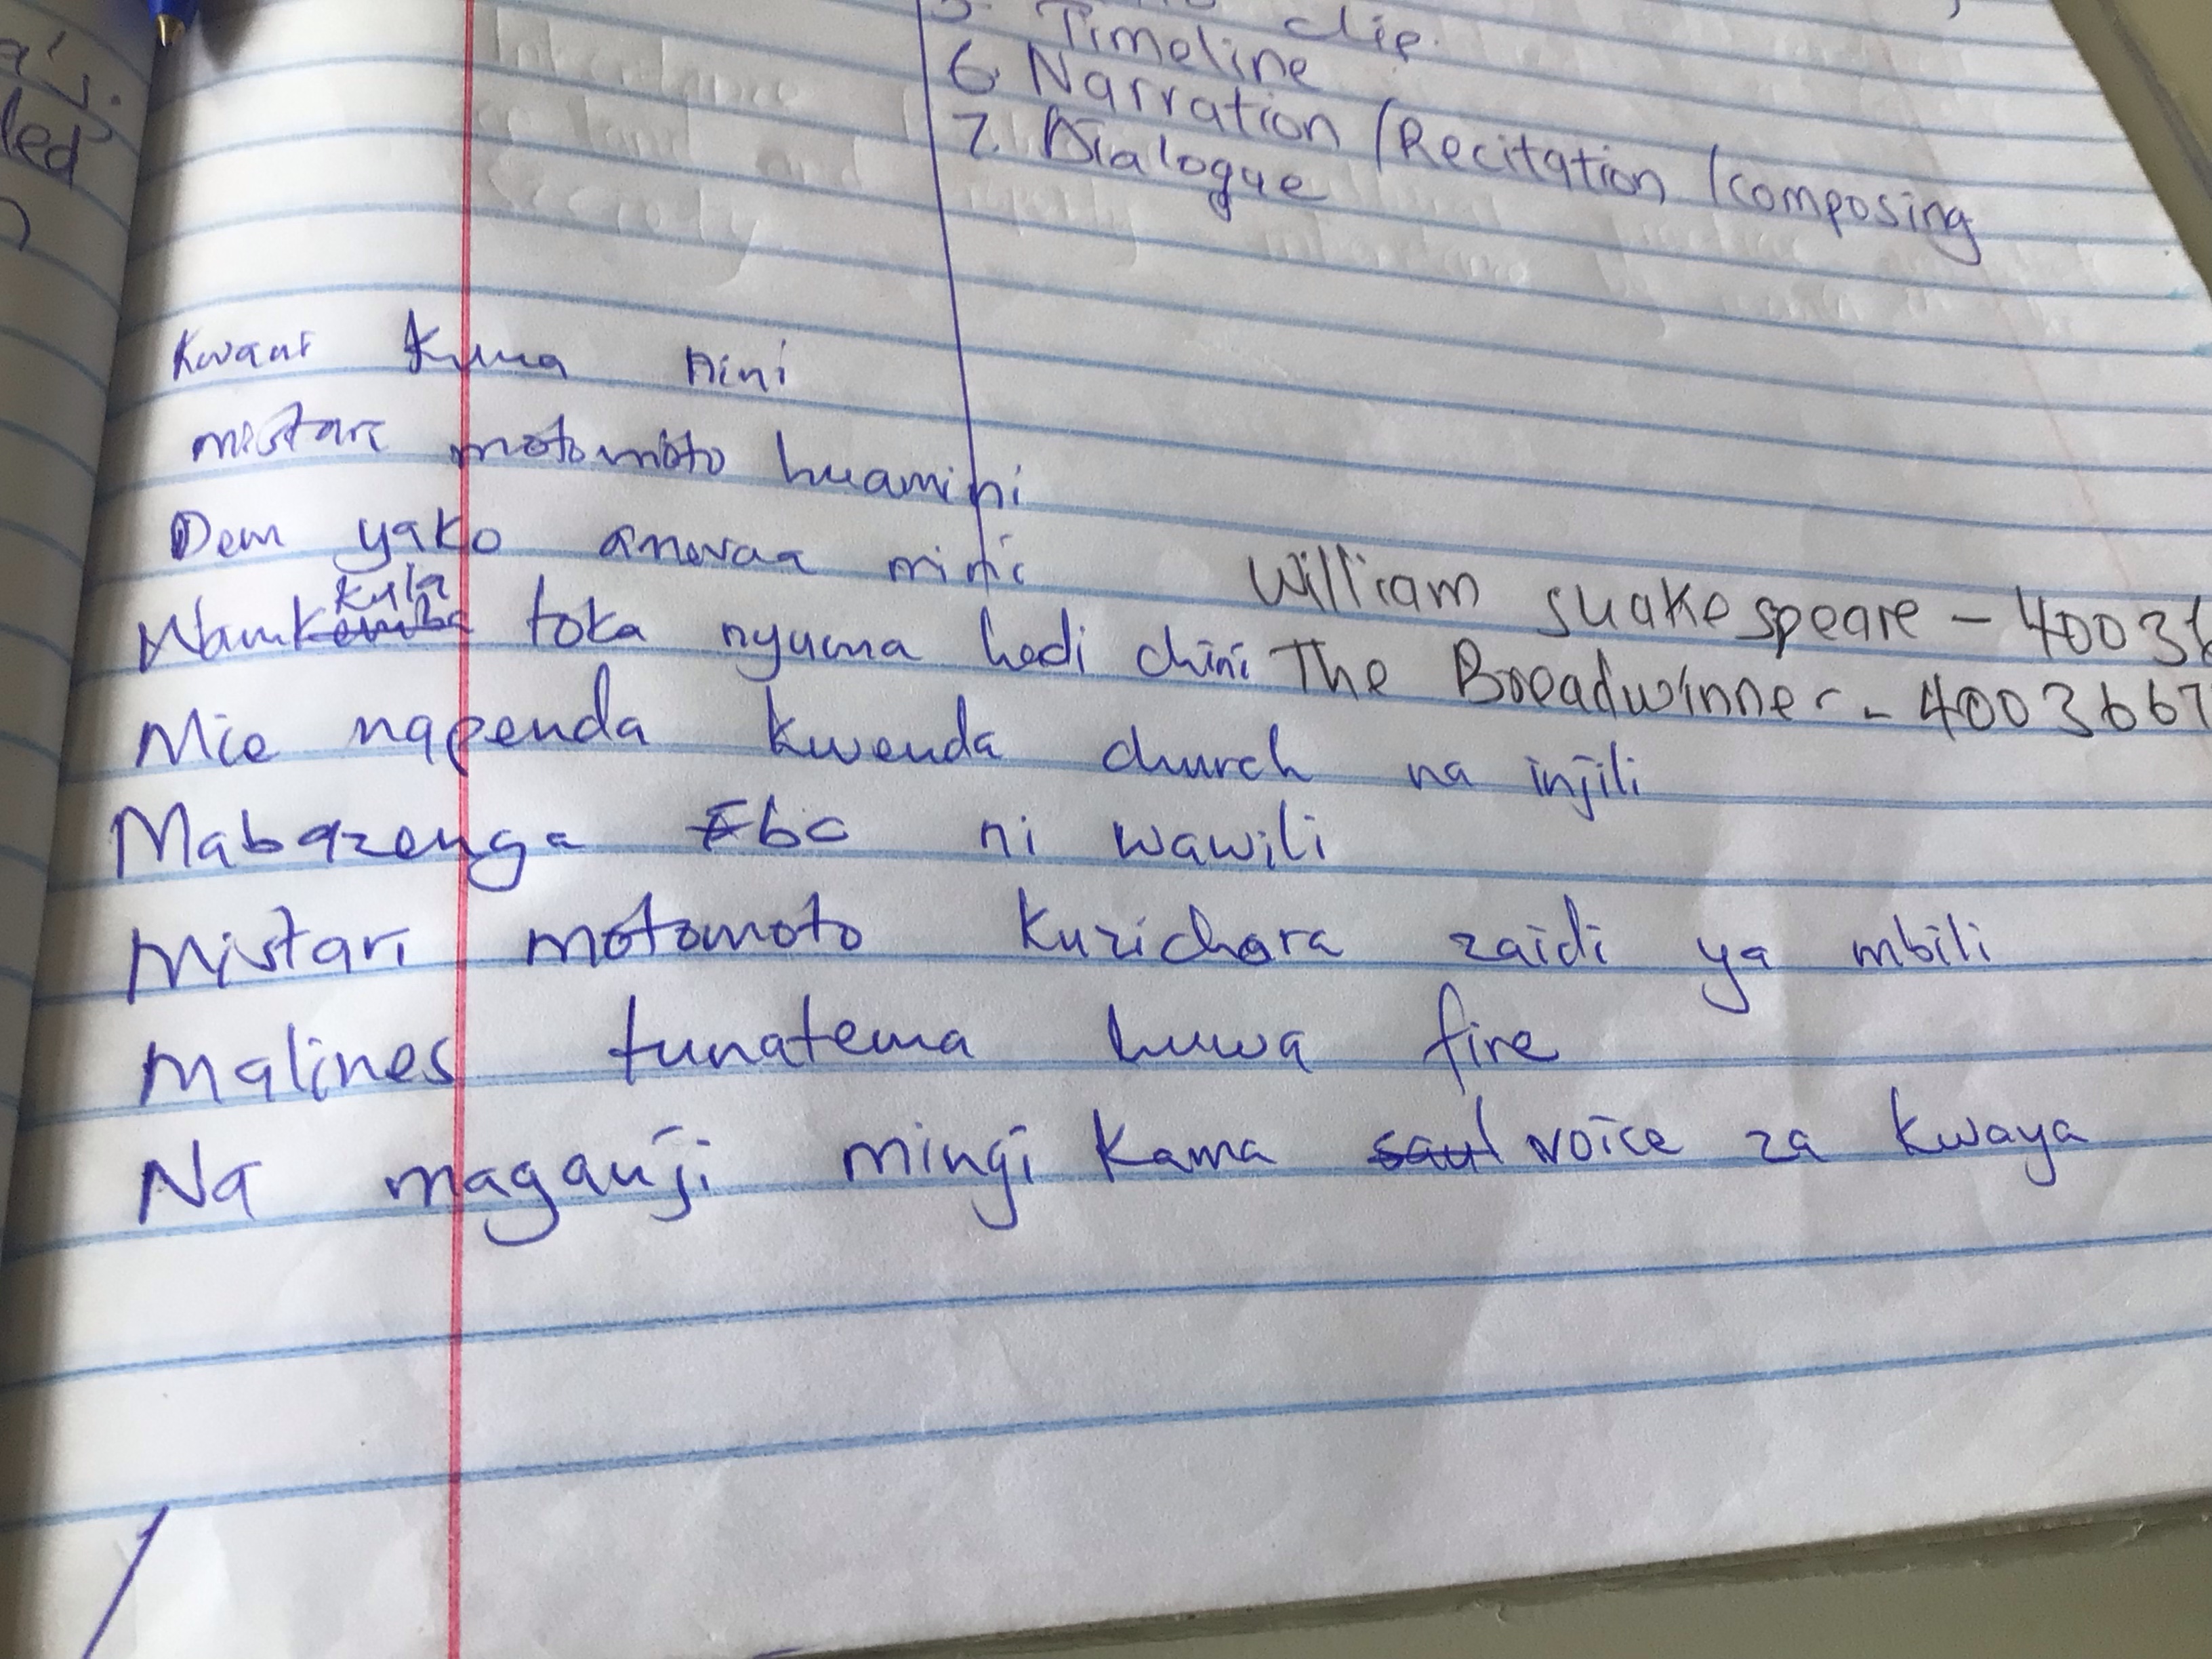 a'j.
led
clip.
Timeline
6. Narration /Recitation /composing
7. Dialogue
Kwani Kuna nini
mistari motomoto huamini
Dem yako anavaa mini
Namkula toka nyuma hadi chini
William suakespeare - 4003
The Breadwinner - 4003667
Mie napenda kwenda church na injili
Mabazenga Ebc ni wawili
Mistari motomoto kuzichora zaidi ya mbili
Malines tunatema huwa fire
Na maganji mingi kama voice za kwaya